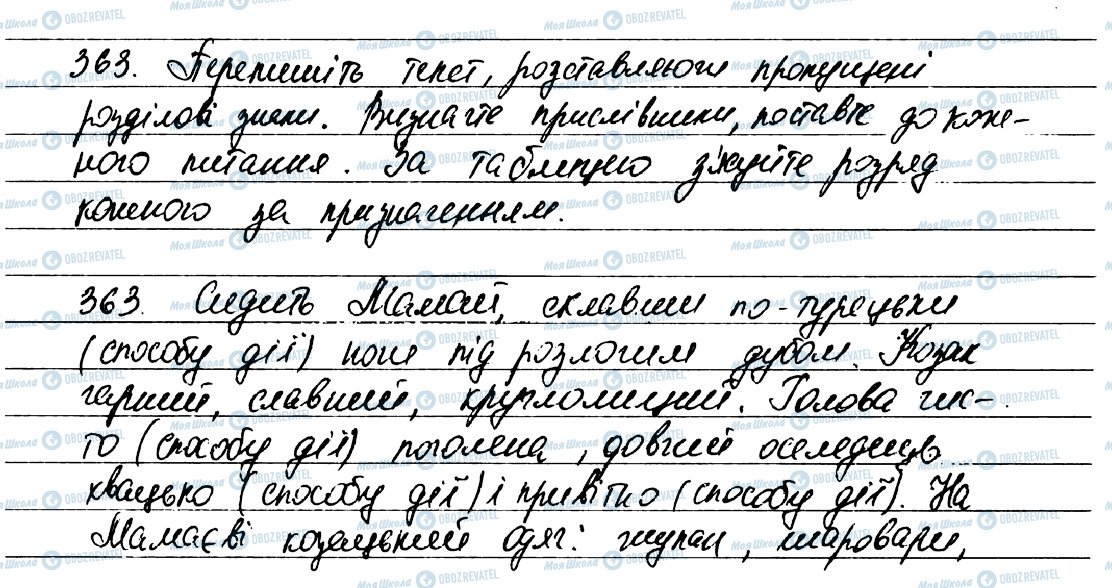 363. Перепишіть текст, розставляючи пропущені
розділові знаки. Визначте прислівники, поставте до кож-
ного питання. За таблицею з'ясуйте розряд
кожного за призначенням.
363. Сидить Мамай, склавши по-турецьки
(способу дії) ноги під розлогим дубом. Козак
гарний, славний, круглолиций. Голова чис-
то (способу дії) поголена, довгий оселедець
хвацько (способу дії) і привітно (способу дії). На
Мамаєві козацький одяг: жупан, шаровари,